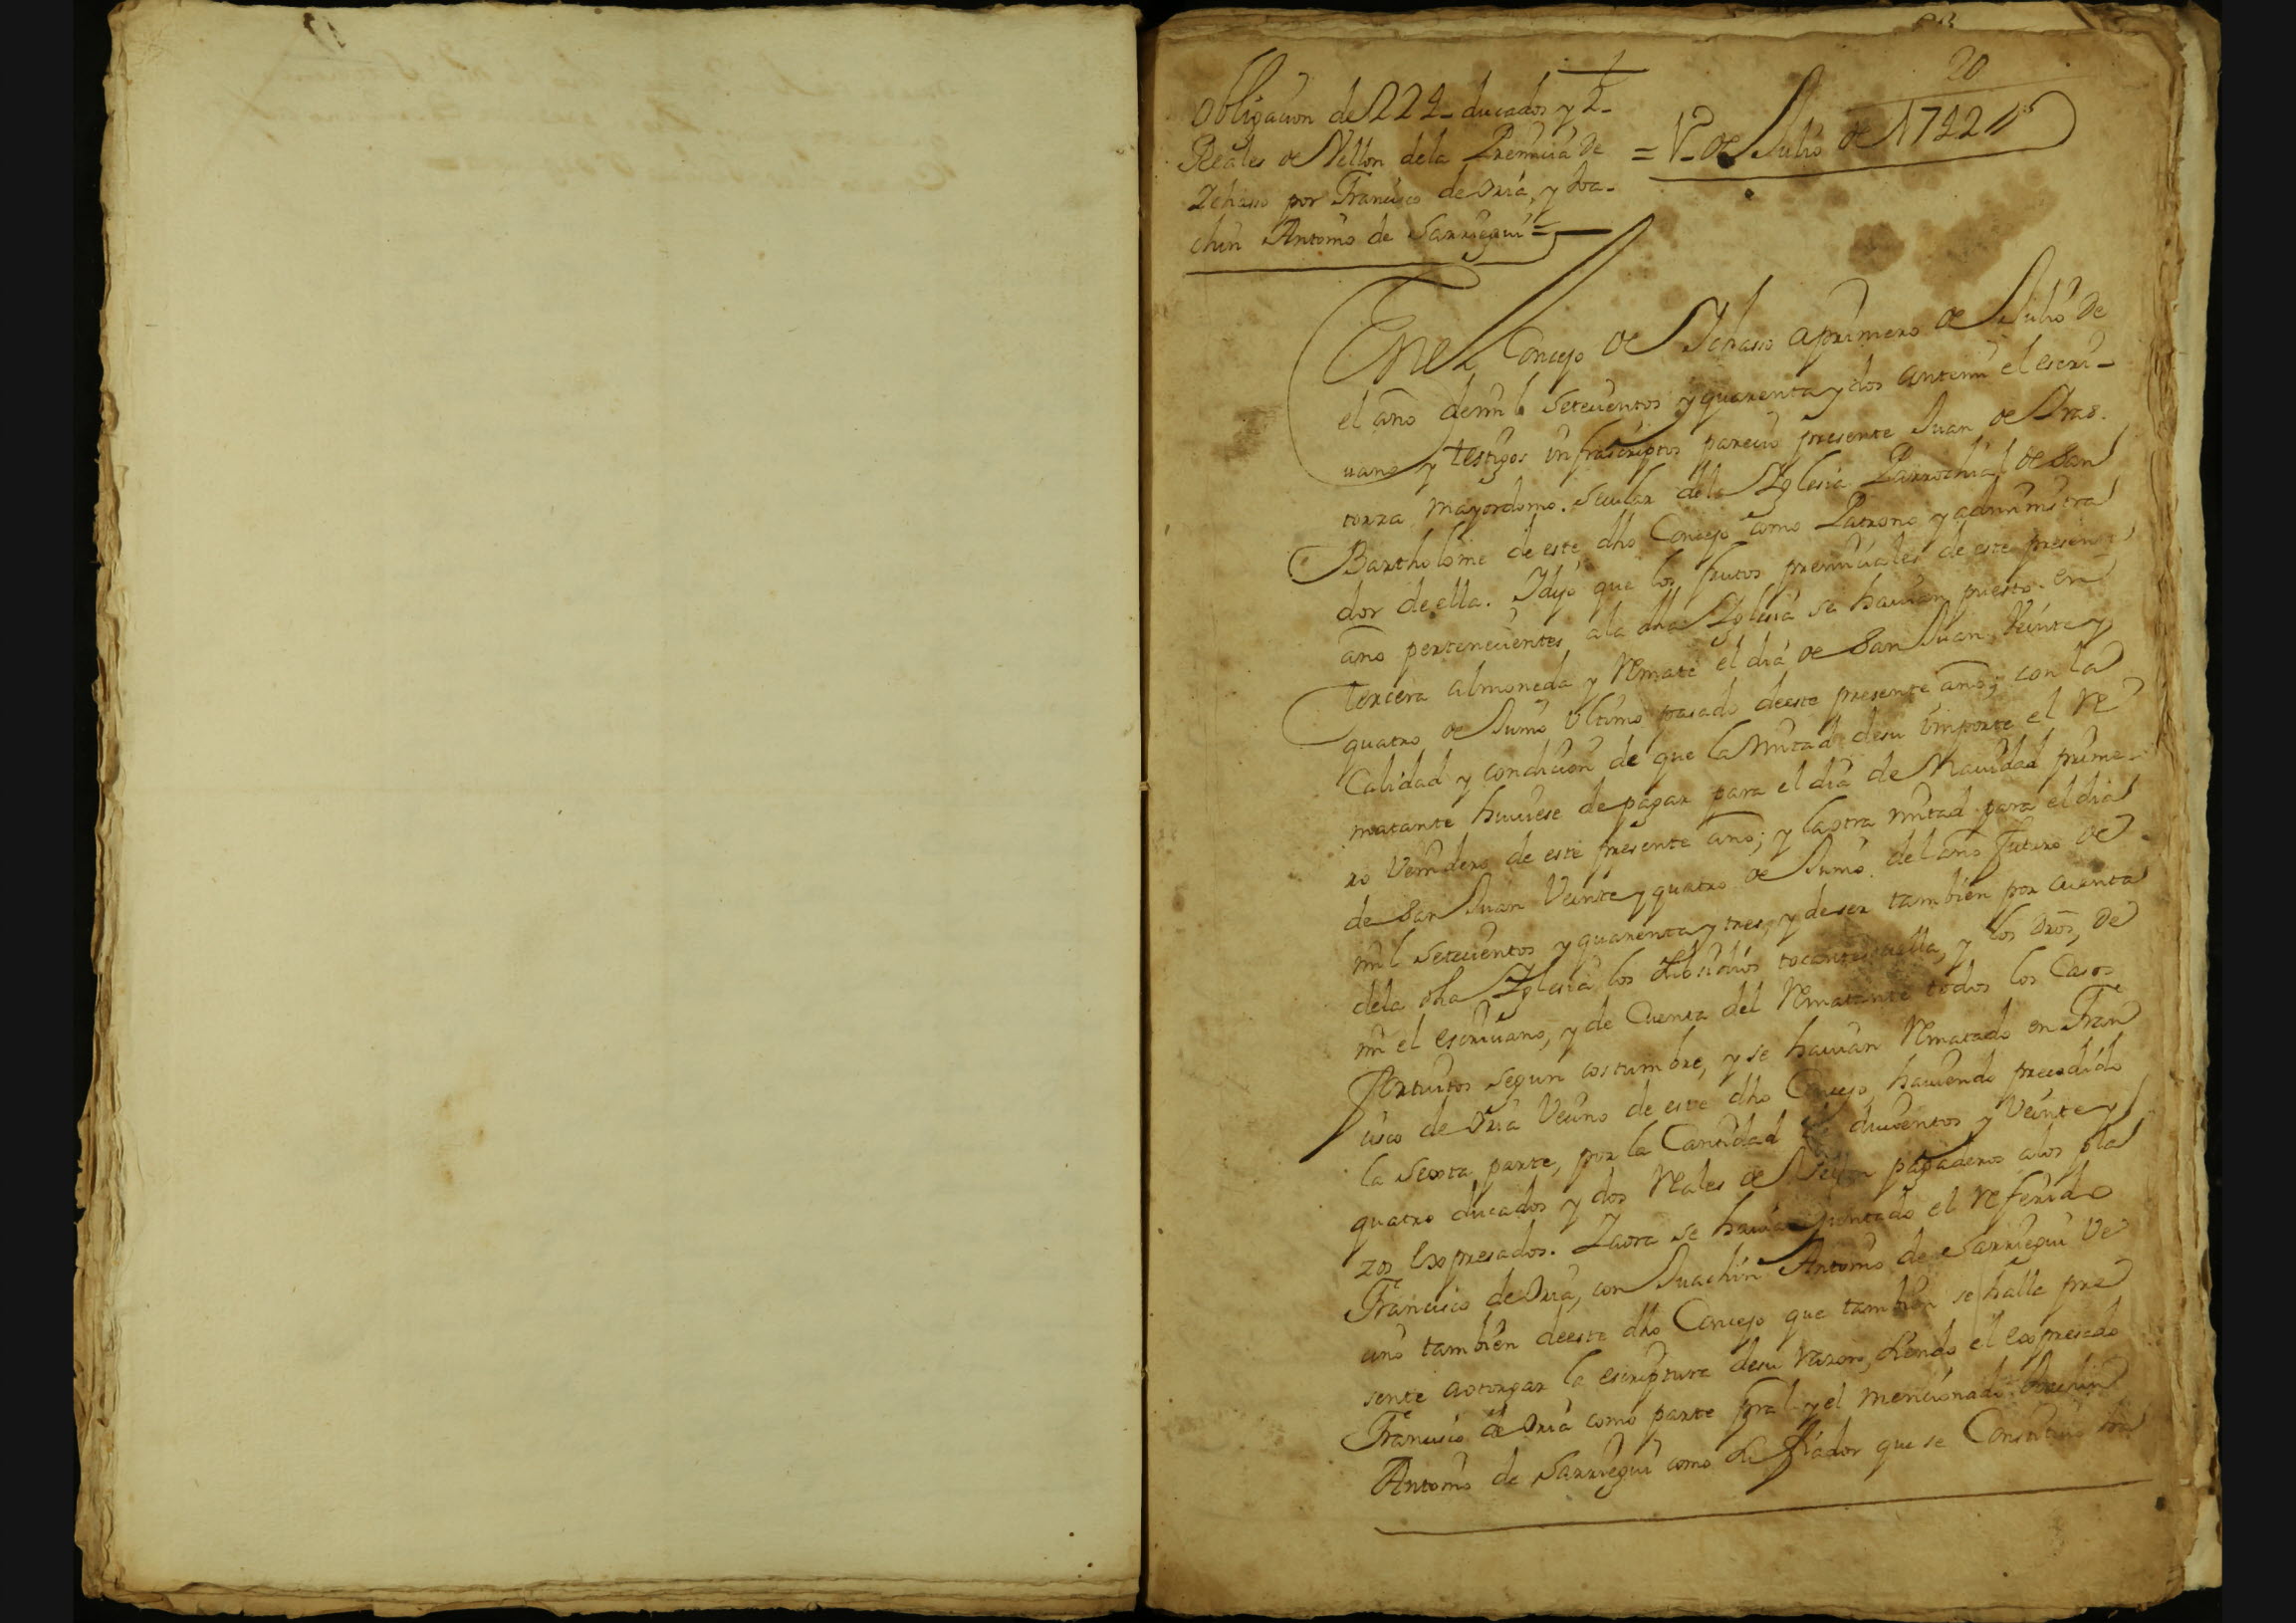 20
Obligacion de 224 ducados y 2
Reales de Vellon dela Premicia de
Ichasso por Francisco de Oria, y Joa-
chin Antonio de Sarriegui =
= 1º de Julio de 1742
En el Concejo de Ichasso aprimero de Julio de
el año demil Setecientos y quarenta y dos antemi el escri-
uano y testigos infrascriptos parecio presente Juan de
torza mayordomo Secular dela Iglesia Parrochial de San
Bartholome de este dho Concejo como Patrono y administra
dor de ella. Y dijo que los frutos premiciales de este presente
año pertenecientes ala dha Iglesia se hauian puesto en
tercera almoneda y Remate el dia de San Juan Veinte y
quatro de Junio Ultimo pasado deeste presente año; con la
Calidad y condicion de que la mitad desu importe el Re
matante huuiese de pagar para el dia de Nauidad prime-
ro Venidero de este presente año; y la otra mitad para el dia
de San Juan Veinte y quatro de Junio del año futuro de
mil Setecientos y quarenta y tres, y de ser tambien por cuenta
dela dha Iglesia los Subsidios tocantes aella, y los dros, de
mi el escriuano, y de Cuenta del Rematante todos los Casos
fortuitos segun costumbre, y se hauian Rematado en Fran
cisco de Oria Vecino de este dho Concejo, hauiendo precedido
la Sexta parte, por la Cantidad de ducientos y Veinte y
quatro ducados y dos Reales de Vellon pagaderos alos pla
zos expresados. Y aora se hauia juntado el referido
Francisco de Oria, con Juachin Antonio de Sarriegui Ve
cino tambien deeste dho Concejo que tambien se halla pre
sente aotorgar la escriptura desu razon, siendo el expresado
Francisco de Oria como parte pral y el mencionado Joachin
Antonio de Sarriegui como su fiador que se Constituio